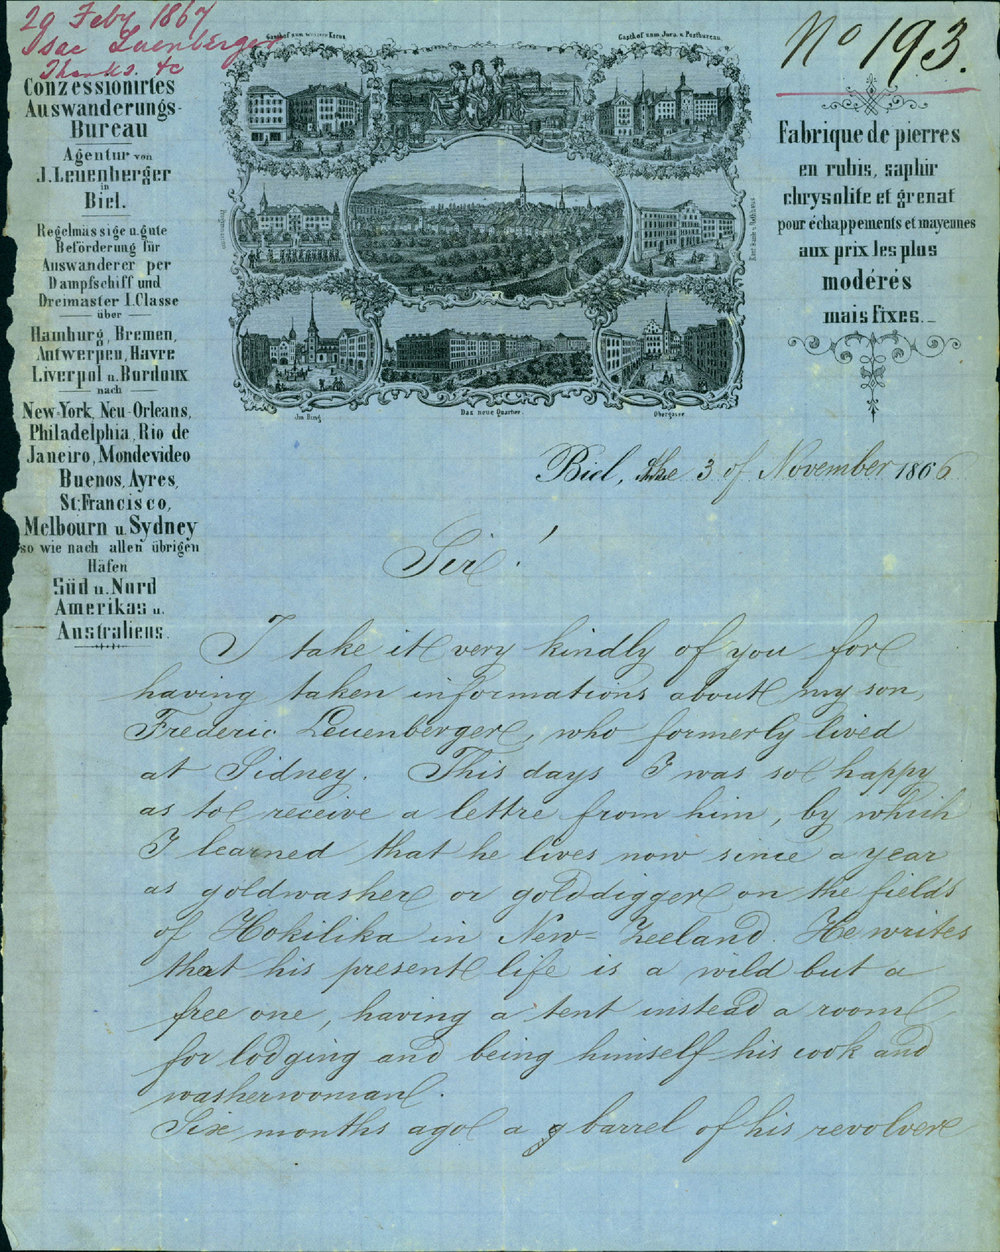 20 Feby 1867
Isac Luenberger
Thanks. &c
No 193.
Conzessionirtes
Auswanderungs-
Bureau
Agentur von
J. Leuenberger
in
Biel.
Regelmässige u. gute
Beförderung für
Auswanderer per
Dampfschiff und
Dreimaster I. Classe
über
Hamburg, Bremen,
Antwerpen, Havre
Liverpol u. Bordoux
nach
New-York, Neu-Orleans,
Philadelphia, Rio de
Janeiro, Mondevideo
Buenos, Ayres,
St: Francisco,
Melbourn u. Sydney
so wie nach allen übrigen
Häfen
Süd u. Nord
Amerikas u.
Australiens.
Gasthof zum weissen Kreuz
Gasthof zum Jura. u. Postbureau.
Im Ring
Das neue Quartier.
Obergasse
Fabrique de pierres
en rubis, saphir
chrysolite et grenat
pour échappements et mayennes
aux prix les plus
modérés
mais fixes._
Biel, the 3 of November 1866
Sir!
I take it very kindly of you for
having taken informations about my son,
Frederic Leuenberger, who formerly lived
at Sidney. This days I was so happy
as to receive a lettre from him, by which
I learned that he lives now since a year
as goldwasher or golddigger on the fields
of Hokilika in New= Zeeland. He writes
that his present life is a wild but a
free one, having a tent instead a room
for lodging and being himself his cook and
washerwoman.
Six months ago a barrel of his revolver